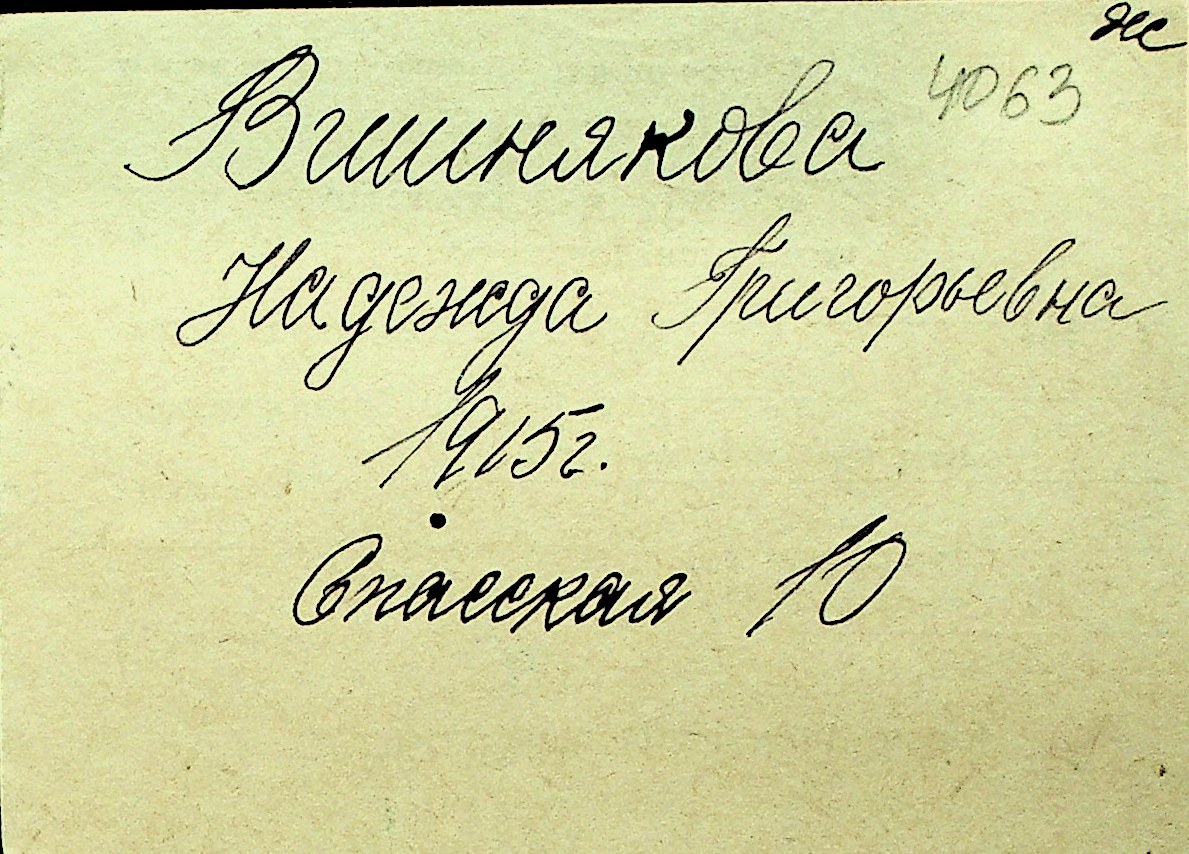 ж
4063
Вишнякова
Надежда Григорьевна
1915г.
Спасская 10